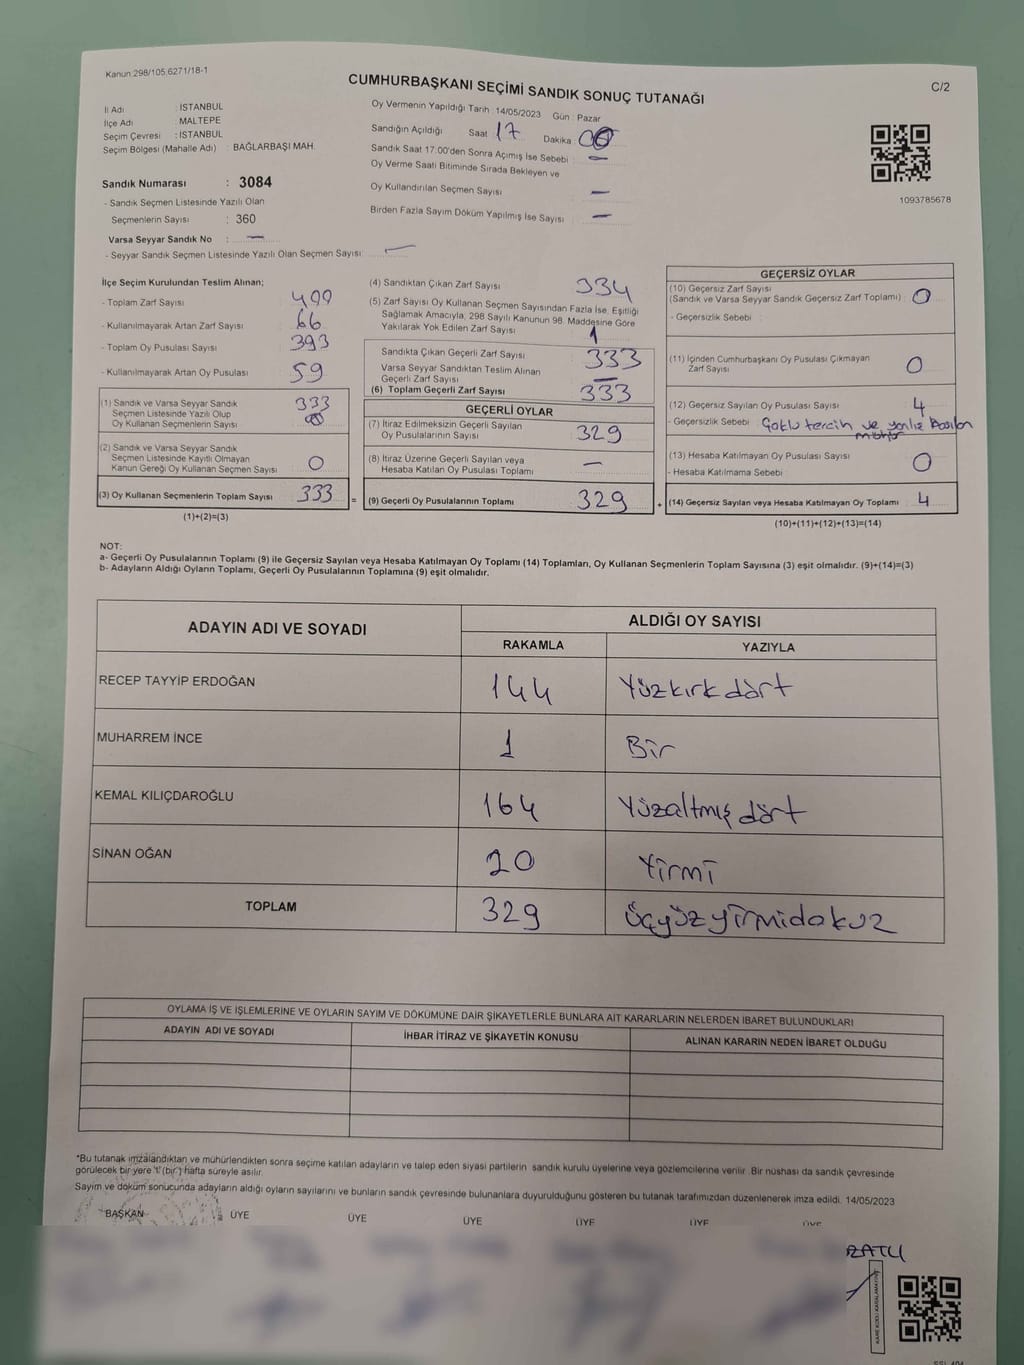 Kanun:298/105,6271/18-1
CUMHURBAŞKANI SEÇİMİ SANDIK SONUÇ TUTANAĞI
C/2
İl Adı : İSTANBUL
İlçe Adı : MALTEPE
Seçim Çevresi : İSTANBUL
Seçim Bölgesi (Mahalle Adı) : BAĞLARBAŞI MAH.
Sandık Numarası : 3084
- Sandık Seçmen Listesinde Yazılı Olan
Seçmenlerin Sayısı : 360
Varsa Seyyar Sandık No : —
- Seyyar Sandık Seçmen Listesinde Yazılı Olan Seçmen Sayısı: —
Oy Vermenin Yapıldığı Tarih : 14/05/2023 Gün : Pazar
Sandığın Açıldığı Saat 17 Dakika
Sandık Saat 17:00'den Sonra Açımış İse Sebebi : —
Oy Verme Saati Bitiminde Sırada Bekleyen ve
Oy Kullandırılan Seçmen Sayısı —
Birden Fazla Sayım Döküm Yapılmış İse Sayısı —
1093785678
İlçe Seçim Kurulundan Teslim Alınan;
- Toplam Zarf Sayısı
- Kullanılmayarak Artan Zarf Sayısı 66
- Toplam Oy Pusulası Sayısı 393
- Kullanılmayarak Artan Oy Pusulası 59
(1) Sandık ve Varsa Seyyar Sandık
Seçmen Listesinde Yazılı Olup
Oy Kullanan Seçmenlerin Sayısı 333
(2) Sandık ve Varsa Seyyar Sandık
Seçmen Listesinde Kayıtlı Olmayan
Kanun Gereği Oy Kullanan Seçmen Sayısı 0
(3) Oy Kullanan Seçmenlerin Toplam Sayısı 333 =
(1)+(2)=(3)
(4) Sandıktan Çıkan Zarf Sayısı 334
(5) Zarf Sayısı Oy Kullanan Seçmen Sayısından Fazla İse, Eşitliği
Sağlamak Amacıyla, 298 Sayılı Kanunun 98. Maddesine Göre
Yakılarak Yok Edilen Zarf Sayısı 1
Sandıkta Çıkan Geçerli Zarf Sayısı 333
Varsa Seyyar Sandıktan Teslim Alınan
Geçerli Zarf Sayısı —
(6) Toplam Geçerli Zarf Sayısı 333
GEÇERLİ OYLAR
(7) İtiraz Edilmeksizin Geçerli Sayılan
Oy Pusulalarının Sayısı 329
(8) İtiraz Üzerine Geçerli Sayılan veya
Hesaba Katılan Oy Pusulası Toplamı —
(9) Geçerli Oy Pusulalarının Toplamı 329 +
GEÇERSİZ OYLAR
(10) Geçersiz Zarf Sayısı
(Sandık ve Varsa Seyyar Sandık Geçersiz Zarf Toplamı) : 0
- Geçersizlik Sebebi :
(11) İçinden Cumhurbaşkanı Oy Pusulası Çıkmayan
Zarf Sayısı 0
(12) Geçersiz Sayılan Oy Pusulası Sayısı 4
- Geçersizlik Sebebi Çoklu tercih ve yanlış basılan
mühür
(13) Hesaba Katılmayan Oy Pusulası Sayısı 0
- Hesaba Katılmama Sebebi
(14) Geçersiz Sayılan veya Hesaba Katılmayan Oy Toplamı 4
(10)+(11)+(12)+(13)=(14)
NOT:
a- Geçerli Oy Pusulalarının Toplamı (9) ile Geçersiz Sayılan veya Hesaba Katılmayan Oy Toplamı (14) Toplamları, Oy Kullanan Seçmenlerin Toplam Sayısına (3) eşit olmalıdır. (9)+(14)=(3)
b- Adayların Aldığı Oyların Toplamı, Geçerli Oy Pusulalarının Toplamına (9) eşit olmalıdır.
ADAYIN ADI VE SOYADI
ALDIĞI OY SAYISI
RAKAMLA YAZIYLA
RECEP TAYYİP ERDOĞAN 144 Yüzkırkdört
MUHARREM İNCE 1 Bir
KEMAL KILIÇDAROĞLU 164 Yüzaltmışdört
SİNAN OĞAN 20 Yirmi
TOPLAM 329 üçyüzyirmidokuz
OYLAMA İŞ VE İŞLEMLERİNE VE OYLARIN SAYIM VE DÖKÜMÜNE DAİR ŞİKAYETLERLE BUNLARA AİT KARARLARIN NELERDEN İBARET BULUNDUKLARI
ADAYIN ADI VE SOYADI İHBAR İTİRAZ VE ŞİKAYETİN KONUSU ALINAN KARARIN NEDEN İBARET OLDUĞU
*Bu tutanak imzalandıktan ve mühürlendikten sonra seçime katılan adayların ve talep eden siyasi partilerin sandık kurulu üyelerine veya gözlemcilerine verilir. Bir nüshası da sandık çevresinde
görülecek bir yere '1' (bir ) hafta süreyle asılır.
Sayım ve döküm sonucunda adayların aldığı oyların sayılarını ve bunların sandık çevresinde bulunanlara duyurulduğunu gösteren bu tutanak tarafımızdan düzenlenerek imza edildi. 14/05/2023
BAŞKAN ÜYE ÜYE ÜYE ÜYE ÜYE ÜYE
KARE KODU KARALAMAYINIZ